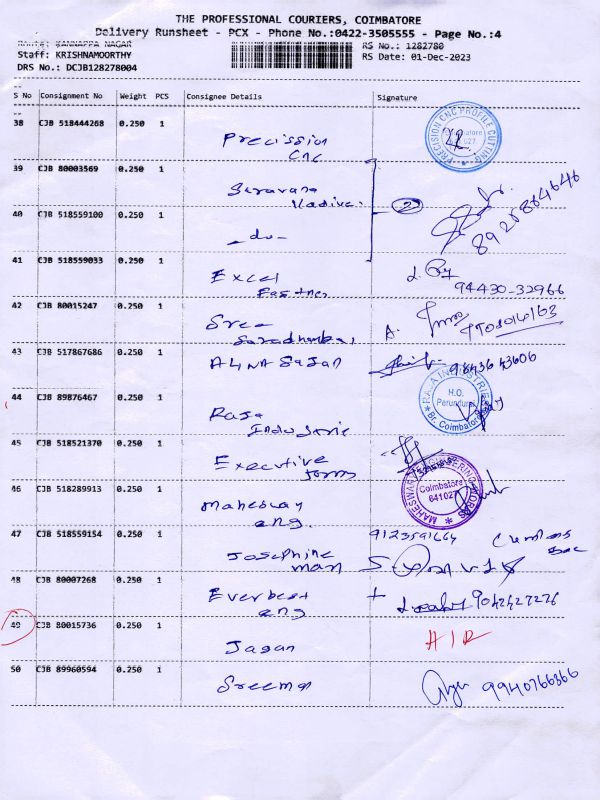 THE PROFESSIONAL COURIERS, COIMBATORE
Delivery Runsheet - PCX - Phone No.:0422-3505555 - Page No.:4
Route: KANNAPPA NAGAR RS No.: 1282780
Staff: KRISHNAMOORTHY RS Date: 01-Dec-2023
DRS No.: DCJB128278004
S No Consignment No Weight PCS Consignee Details Signature
38 CJB 518444268 0.250 1 Precission CNC
PRECISION CNC PROFILE CUTTING
39 CJB 80003569 0.250 1 Saravana 2
8925864646
40 CJB 518559100 0.250 1 -do-
41 CJB 518559033 0.250 1 Excel Fastner
94430-32966
42 CJB 80015247 0.250 1 Sree
43 CJB 517867686 0.250 1
9843643606
44 CJB 89876467 0.250 1 Raja Industrie
RAJA INDUSTRIES H.O. Perundurai Br. Coimbatore
45 CJB 518521370 0.250 1 Executive
46 CJB 518289913 0.250 1 eng.
MAHESWARI ENGINEERING WORKS Coimbatore 641027
47 CJB 518559154 0.250 1 Josephine man
9123591664
48 CJB 80007268 0.250 1 Everbest eng
9042427226
49 CJB 80015736 0.250 1 Jagan
50 CJB 89960594 0.250 1 Sreeman
9940766366